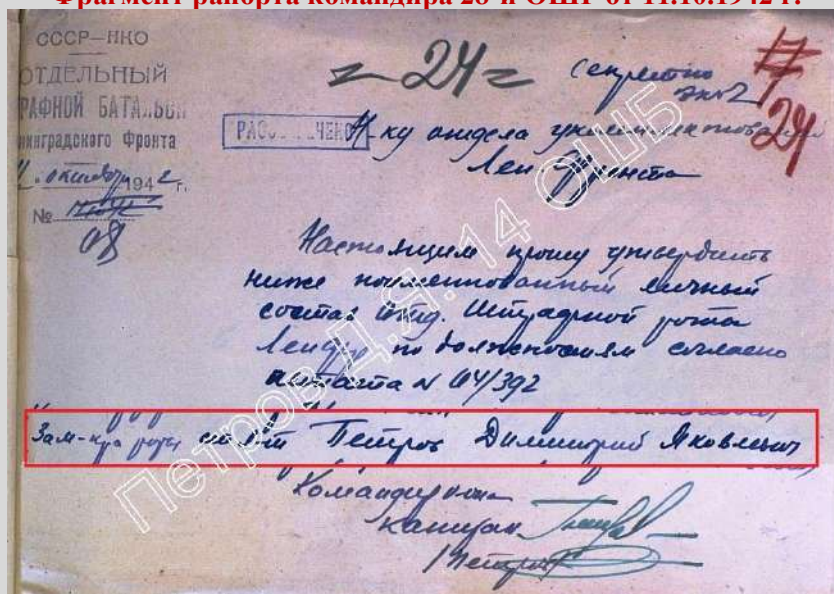 Фрагмент рапорта командира 28-й ОШР от 11.10.1942 г.
СССР-НКО
ОТДЕЛЬНЫЙ
РАФНОЙ БАТАЛЬОН
нинградского Фронта
октября 1942 г.
№
08
24
Секретно
экз 2
24
РАССЕКРЕЧЕНО
Н-ку отдела укомплектования
Лен Фронта
Настоящим прошу утвердить
ниже поименнованный личный
состав отд. Штрафной роты
Ленфр по должностям согласно
штата N 04/392
Зам-кра роты ст. л-т Петров Димитрий Яковлевич
Командир роты
капитан
Петров Д.Я. 14 ОШБ